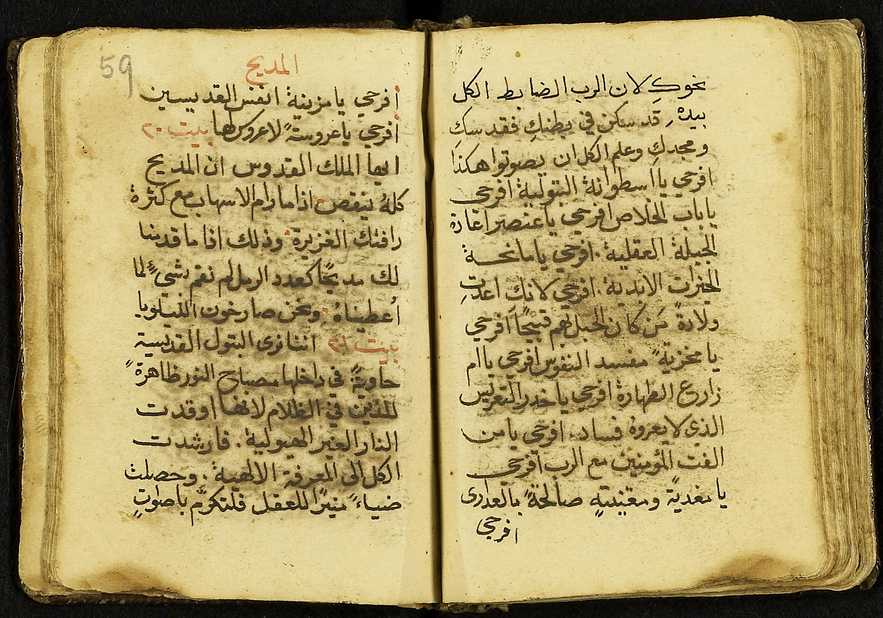 نحوكِ لان الرب الضابط الكل
بيدهِ قد سكن في بطنكِ فقدسكِ
ومجدكِ وعلم الكل ان يصوتوا هكذا
افرحي يااسطوانة البتولية افرحي
ياباب الخلاص افرحي ياعنصر اعادة
الجبلة العقلية. افرحي يامانحة
الخيرات الابدية. افرحي لانكِ اعدتِ
ولادةً مَن كان الحبل بهم قبيحًا افرحي
يا مخزيةً مفسد النفوس افرحي ياام
زارع الطهارة افرحي ياخدر التعريس
الذي لا يعروهُ فساد. افرحي يامن
الفت المؤمنين مع الرب افرحي
يا مغذيةً ومقنيتهِ صالحةً بالعدرى
افرحي
59
المديح
افرحي يامزينة انفس القديسين
افرحي ياعروسةً لاعروس لها بيت ٢٠
ايها الملك القدوس ان المديح
كلهُ ينقص اذا مارام الاسهاب مع كثرة
رافتك الغزيرة. وذلك اذا ماقدمنا
لك مديحًا كعدد الرمل لم نقم بشيءٍ لما
اُعطيناهُ. ونحن صارخون الليلويا
بيت ٢١ اننا نرى البتول القديسة
حاويةً في داخلها مصباح النور ظاهرةً
للذين في الظلام لانها اوقدت
النار الغير الهيولية. فارشدت
الكل الى المعرفة الالهية. وحصلت
ضياءً منيرًا للعقل فلتكرَّم باصوتٍ